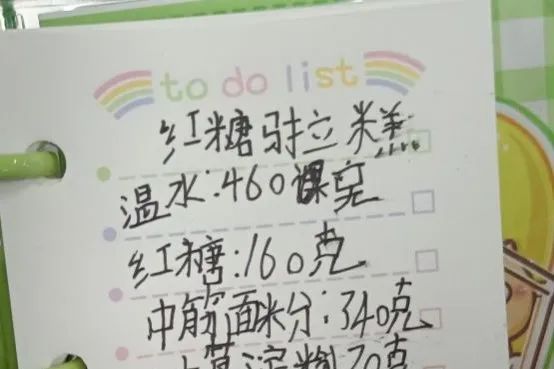 to do list
红糖马拉糕
温水:460克
红糖:160克
中筋面粉:340克
淀粉 70克